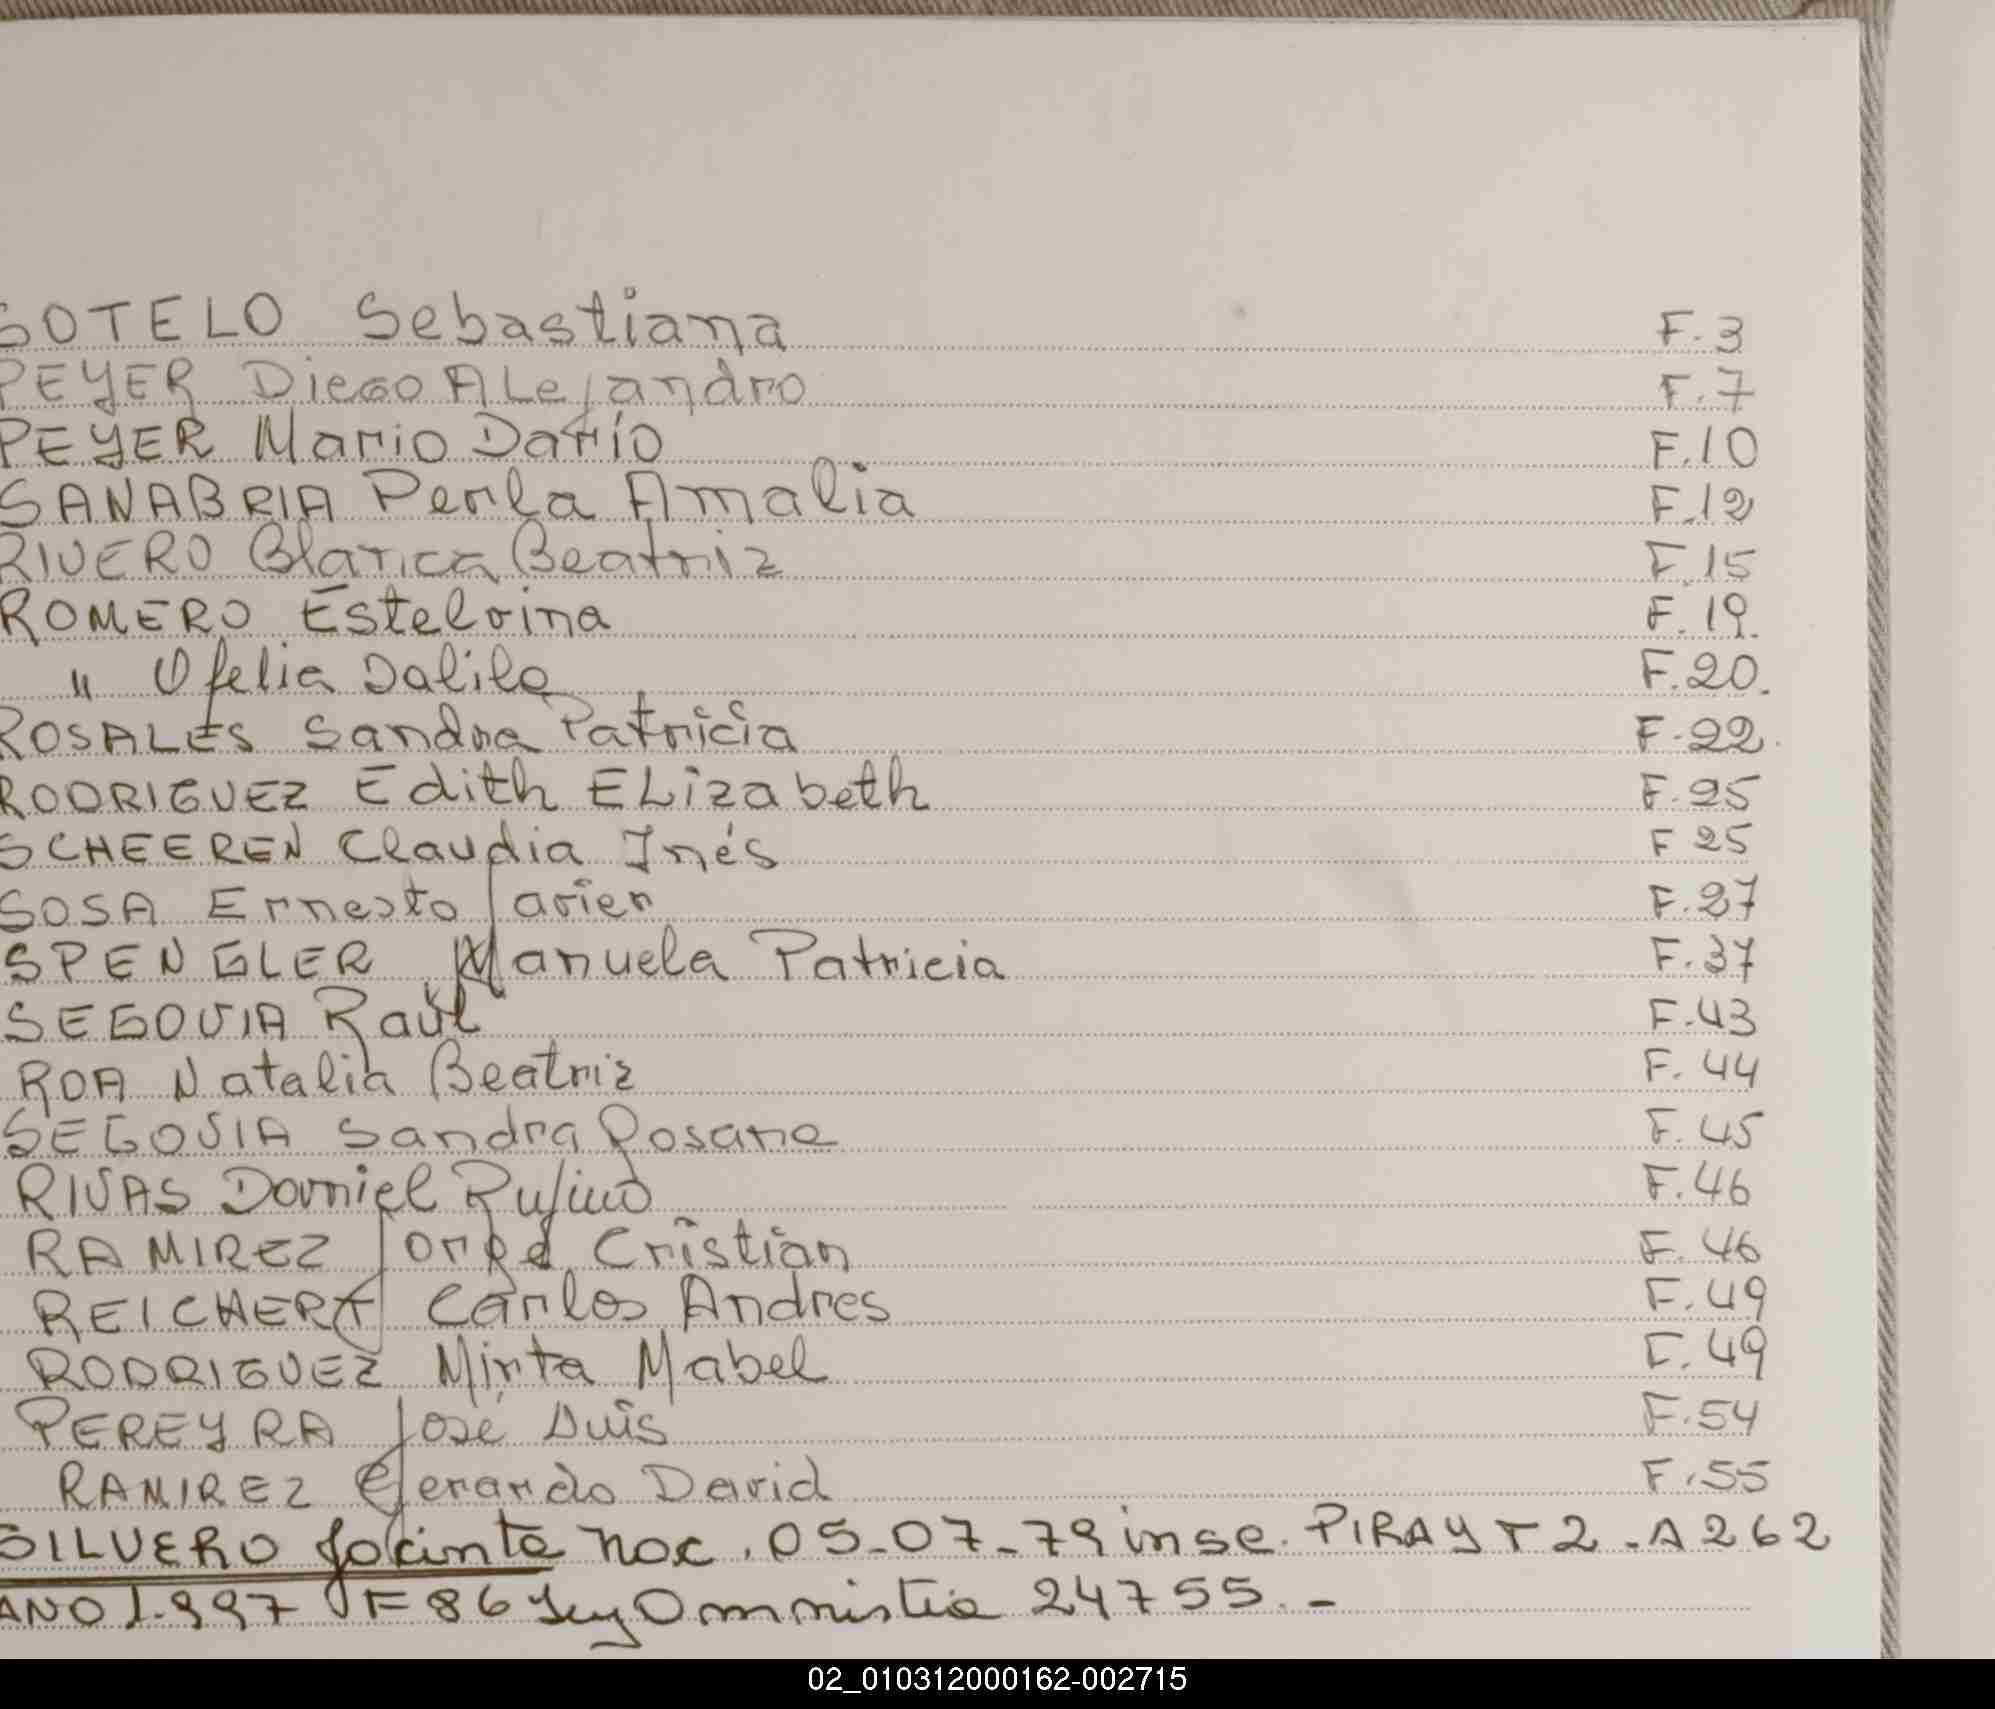 SOTELO Sebastiana F.3
PEYER Diego ALejandro F.7
PEYER Mario Darío F.10
SANABRIA Perla Amalia F.12
RIVERO Blanca Beatriz F.15
ROMERO Estelvina F.19.
" Ofelia Dalila F.20.
ROSALES Sandra Patricia F.22.
RODRIGUEZ Edith ELizabeth F.25
SCHEEREN Claudia Inés F 25
SOSA Ernesto Javier F.27
SPENGLER Manuela Patricia F.37
SEGOVIA Raúl F.43
ROA Natalia Beatriz F.44
SEGOVIA Sandra Rosana F.45
RIVAS Daniel Rufino F.46
RAMIREZ Jorge Cristian F.46
REICHERT Carlos Andres F.49
RODRIGUEZ Mirta Mabel F.49
PEREYRA José Luis F.54
RAMIREZ Gerardo David F.55
SILVERO Jacinta nac. 05-07-79 insc. PIRAY T2-A262
AÑO 1.997 F 86 Ley Ammistia 24755.-
02_010312000162-002715